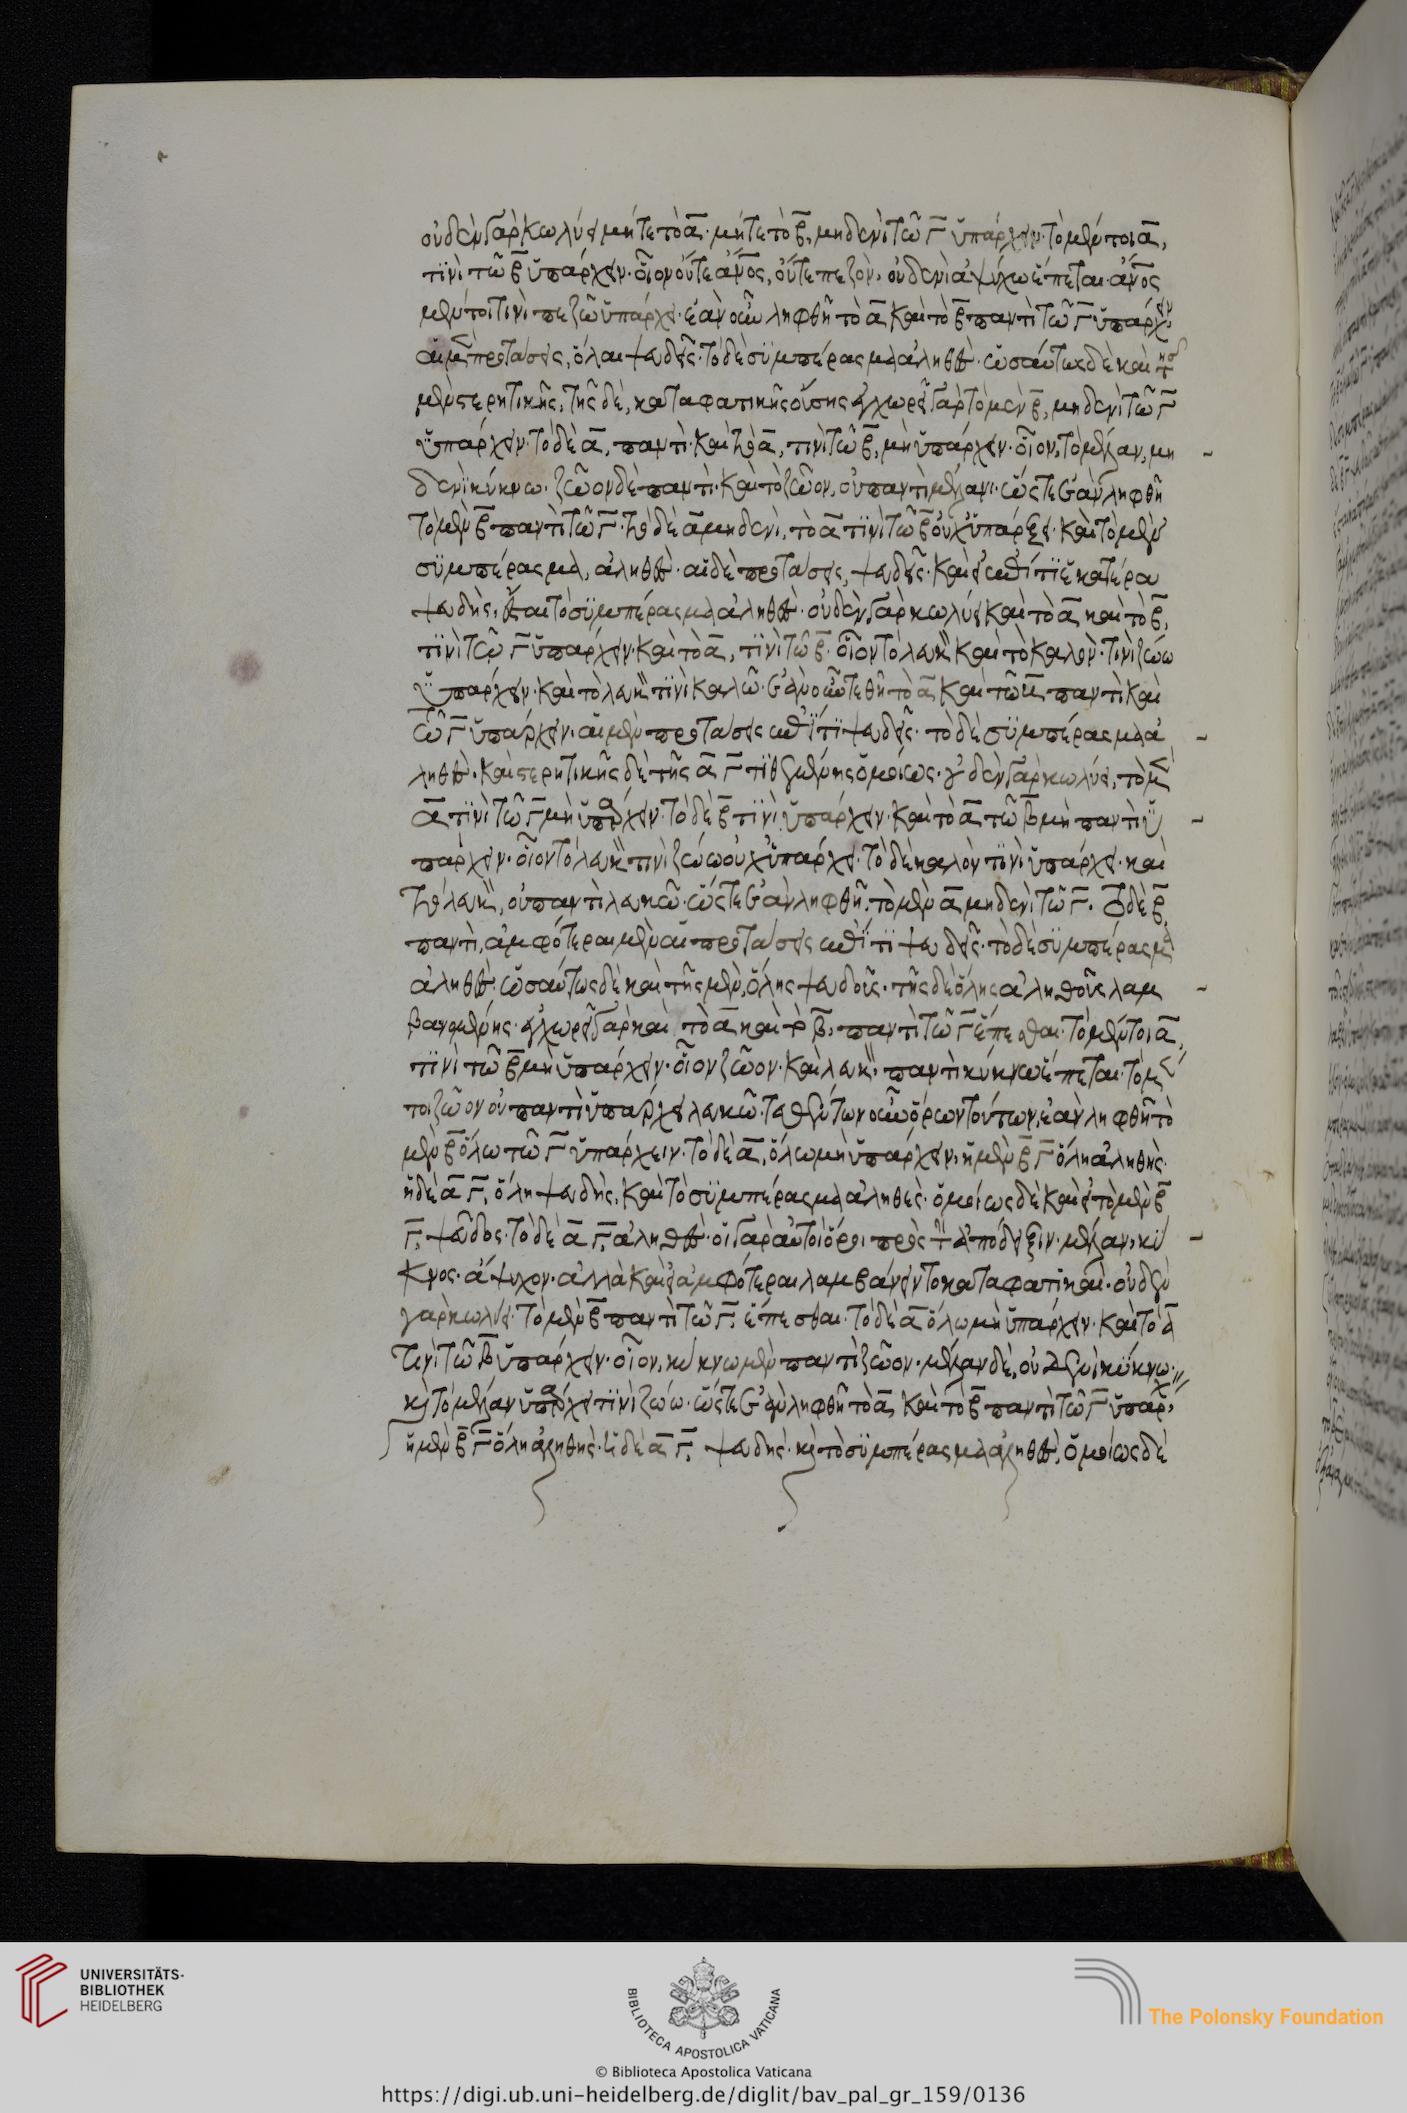 οὐδὲν γὰρ κωλύει μήτε τὸ α̅· μήτε τὸ β̅, μηδενὶ τῶ γ̅ ὑπάρχειν· τὸ μέντοι α̅,
τινὶ τῶ β̅ ὑπάρχειν· οἷον οὔτε ἄνο̅ς, οὔτε πεζὸν, οὐδενὶ ἀψύχω ἕπεται· ἄνο̅ς
μέντοι τινὶ πεζῶ ὑπάρχει· ἐὰν οὖν ληφθῆ τὸ α̅ καὶ τὸ β̅ παντὶ τῶ γ̅ ὑπάρχειν
αἱ μὲν προτάσεις, ὅλαι ψευδεῖς· τὸ δὲ συμπέρασμα ἀληθές· ὡσαύτως δὲ καὶ τῆς
μὲν στερητικῆς, τῆς δὲ, καταφατικῆς οὔσης ἐγχωρεῖ γὰρ τὸ μὲν β̅, μηδενὶ τῶ γ̅
ὑπάρχειν· τὸ δὲ α̅, παντὶ· καὶ τὸ α̅, τινὶ τῶ β̅, μὴ ὑπάρχειν· οἷον, τὸ μέλαν, μη
δενὶ κύκνω· ζῶον δὲ παντὶ· καὶ τὸ ζῶον, οὐ παντὶ μέλανι· ὥστε ἐὰν ληφθῆ
τὸ μὲν β̅ παντὶ τῶ γ̅· τὸ δὲ α̅ μηδενὶ, τὸ α̅ τινὶ τῶ β̅ οὐχ ὑπάρξει· καὶ τὸ μὲν
συμπέρασμα, ἀληθές· αἱ δὲ προτάσεις, ψευδεῖς· καὶ εἰ ἐπί τι ἑκατέρα
ψευδὴς, ἔσται τὸ συμπέρασμα ἀληθές· οὐδὲν γὰρ κωλύει καὶ τὸ α̅ καὶ τὸ β̅,
τινὶ τῶ γ̅ ὑπάρχειν· καὶ τὸ α̅, τινὶ τῶ β̅· οἷον τὸ λευκὸν καὶ τὸ καλὸν· τινὶ ζώω
ὑπάρχειν· καὶ τὸ λευκὸν τινὶ καλῶ· ἐὰν οὖν τεθῆ τὸ α̅ καὶ τὸ β̅ παντὶ καὶ
τῶ γ̅ ὑπάρχειν· αἱ μὲν προτάσεις ἐπί τι ψευδεῖς· τὸ δὲ συμπέρασμα ἀ
ληθές· καὶ στερητικῆς δὲ τῆς α̅ γ̅ τιθεμένης ὁμοίως· οὐδὲν γὰρ κωλύει, τὸ μὲν
α̅ τινὶ τῶ γ̅ μὴ ὑπάρχειν· τὸ δὲ β̅ τινὶ ὑπάρχειν· καὶ τὸ α̅ τῶ β̅ μὴ παντὶ ὑ
πάρχειν· οἷον τὸ λευκὸν τινὶ ζώω οὐχ ὑπάρχει· τὸ δὲ καλὸν τινὶ ὑπάρχει· καὶ
τὸ λευκὸν, οὐ παντὶ λευκῶ· ὥστε ἐὰν ληφθῆ, τὸ μὲν α̅ μηδενὶ τῶ γ̅. τὸ δὲ β̅
παντὶ, ἀμφότεραι μὲν αἱ προτάσεις ἐπί τι ψευδεῖς· τὸ δὲ συμπέρασμα
ἀληθές· ὡσαύτως δὲ καὶ τῆς μὲν, ὅλης ψευδοῦς· τῆς δὲ ὅλης ἀληθοῦς λαμ
βανομένης· ἐγχωρεῖ γὰρ καὶ τὸ α̅ καὶ τὸ β̅, παντὶ τῶ γ̅ ἕπεσθαι· τὸ μέντοι α̅,
τινὶ τῶ β̅ μὴ ὑπάρχειν· οἷον ζῶον· καὶ λευκὸν· παντὶ κύκνω ἕπεται· τὸ μέν
τοι ζῶον οὐ παντὶ ὑπάρχει λευκῶ· τεθέντων οὖν ὅρων τούτων, ἐὰν ληφθῆ τὸ
μὲν β̅ ὅλω τῶ γ̅ ὑπάρχειν· τὸ δὲ α̅, ὅλω μὴ ὑπάρχειν, ἡ μὲν β̅ γ̅ ὅλη ἀληθής·
ἡ δὲ α̅ γ̅, ὅλη ψευδής, καὶ τὸ συμπέρασμα ἀληθές· ὁμοίως δὲ καὶ εἰ τὸ μὲν β̅
γ̅, ψεῦδος· τὸ δὲ α̅ γ̅, ἀληθές· οἱ γὰρ αὐτοὶ ὅροι πρὸς τὴν ἀπόδειξιν· μέλαν, κύ
κνος· ἄψυχον· ἀλλὰ καὶ εἰ ἀμφότεραι λαμβάνοιντο καταφατικαί· οὐδὲν
γὰρ κωλύει· τὸ μὲν β̅ παντὶ τῶ γ̅, ἕπεσθαι· τὸ δὲ α̅ ὅλω μὴ ὑπάρχειν· καὶ τὸ α̅
τινὶ τῶ β̅ ὑπάρχειν· οἷον, κύκνω μὲν παντὶ ζῶον· μέλαν δὲ, οὐδενὶ κύκνω·
κ(αὶ) τὸ μέλαν ὑπάρχει τινὶ ζώω· ὥστε ἐὰν ληφθῆ τὸ α̅ καὶ τὸ β̅ παντὶ τῶ γ̅ ὑπάρχ,
ἡ μὲν β̅ γ̅ ὅλη ἀληθής· ἡ δὲ α̅ γ̅, ψευδής· κ(αὶ) τὸ συμπέρασμα ἀληθές, ὁμοίως δὲ
UNIVERSITÄTS-
BIBLIOTHEK
HEIDELBERG
BIBLIOTECA APOSTOLICA VATICANA
The Polonsky Foundation
© Biblioteca Apostolica Vaticana
https://digi.ub.uni-heidelberg.de/diglit/bav_pal_gr_159/0136